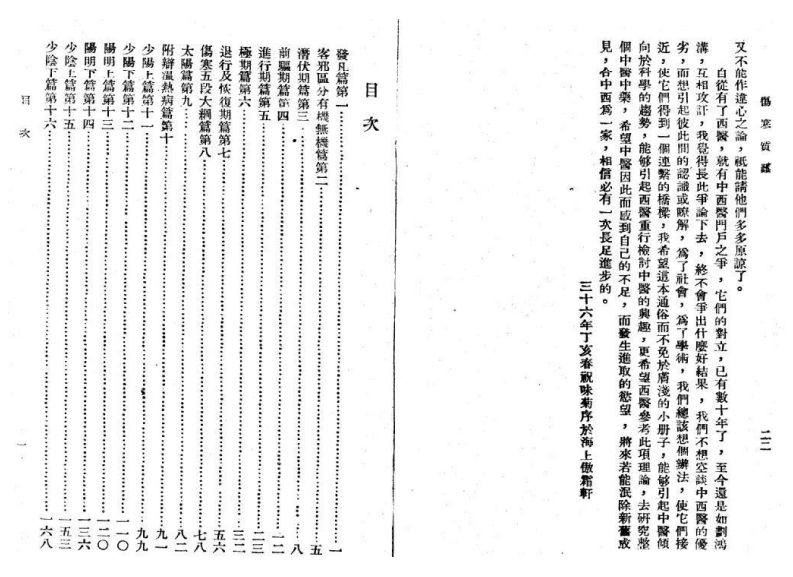 傷寒質難
二二
又不能作違心之論，祇能請他們多多原諒了。
自從有了西醫，就有中西醫門戶之爭，它們的對立，已有數十年了，至今還是如劃鴻
溝，互相攻訐，我覺得長此爭論下去，終不會爭出什麼好結果，我們不想空談中西醫的優
劣，而想引起彼此間的認識或瞭解，爲了社會，爲了學術，我們總該想個辦法，使它們接
近，使它們得到一個連繫的橋樑，我希望這本通俗而不免於膚淺的小册子，能够引起中醫傾
向於科學的趨勢，能够引起西醫重行檢討中醫的興趣，更希望西醫參考此項理論，去研究整
個中醫中藥，希望中醫因此而感到自己的不足，而發生進取的慾望，將來若能泯除新舊成
見，合中西爲一家，相信必有一次長足進步的。
三十六年丁亥春祝味菊序於海上傲霜軒
目次
發凡篇第一……一
客邪區分有機無機篇第二……五
潛伏期篇第三……八
前驅期篇第四……一二
進行期篇第五……二三
極期篇第六……三二
退行及恢復期篇第七……五六
傷寒五段大綱篇第八……七八
太陽篇第九……八二
附辯溫熱病篇第十……九一
少陽上篇第十一……九九
少陽下篇第十二……一一〇
陽明上篇第十三……一二〇
陽明下篇第十四……一三六
少陰上篇第十五……一五三
少陰下篇第十六……一六八
目次
一